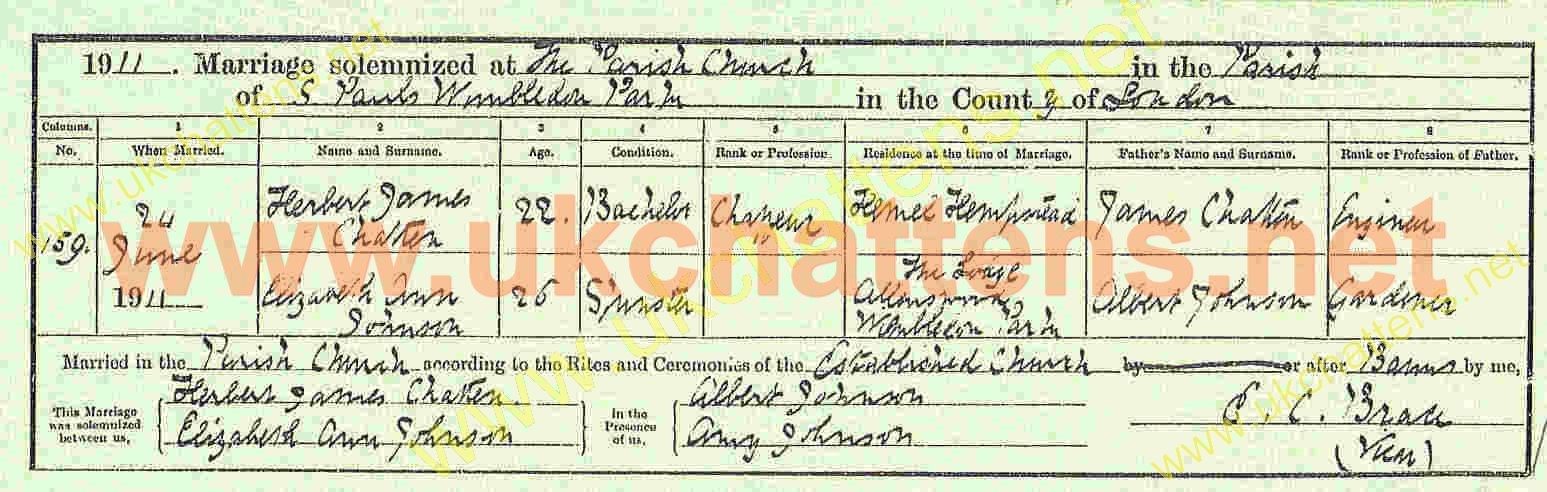 1911. Marriage solemnized at The Parish Church in the Parish
of S Pauls Wimbledon Park in the County of London
Columns. 1 2 3 4 5 6 7 8
No. When Married. Name and Surname. Age. Condition. Rank or Profession. Residence at the time of Marriage. Father's Name and Surname. Rank or Profession of Father.
159. 24 June 1911
Herbert James Chatten 22. Bachelor Hemel Hempstead James Chatten Engineer
Elizabeth Ann Johnson 26 Spinster The Lodge Wimbledon Park Albert Johnson Gardener
Married in the Parish Church according to the Rites and Ceremonies of the Established Church by or after Banns by me,
This Marriage was solemnized between us,
Herbert James Chatten
Elizabeth Ann Johnson
In the Presence of us,
Albert Johnson
Amy Johnson
E. C.
(Vicar)
www.ukchattens.net
www.ukchattens.net
www.ukchattens.net
www.ukchattens.net